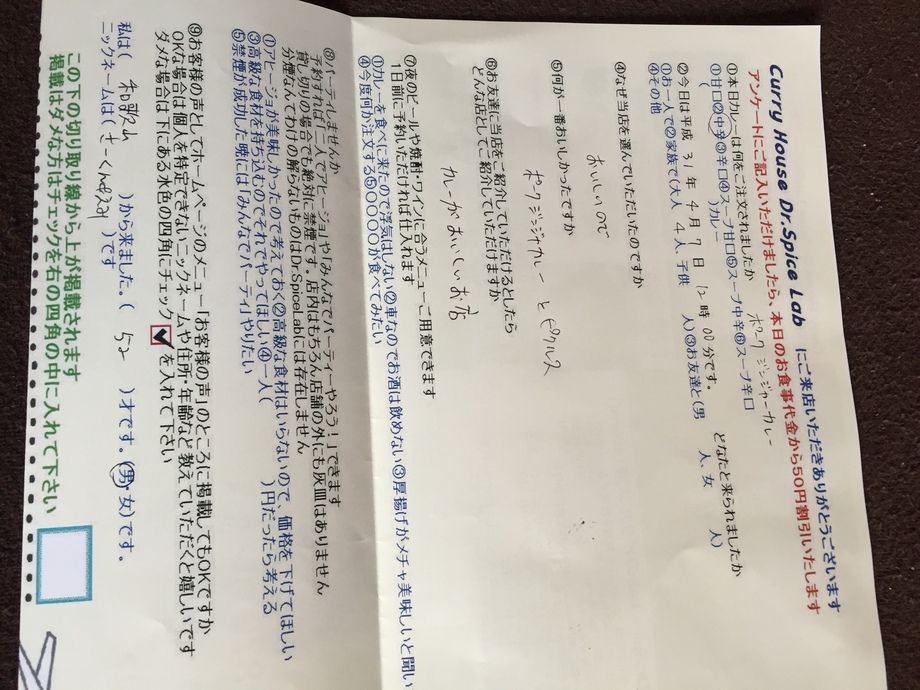 Curry House Dr.Spice Lab にご来店いただきありがとうございます
アンケートにご記入いただけましたら、本日のお食事代金から50円割引いたします
①本日カレーは何をご注文されましたか ポーク ジンジャーカレー
①甘口②中辛③辛口④スープ甘口⑤スープ中辛⑥スープ辛口
( )カレー
②今日は平成 31年 4月 7日 12時 00分です。 どなたと来られましたか
①お一人で②ご家族で(大人 4人、子供 人)③お友達と(男 人、女 人)
④その他
④なぜ当店を選んでいただいたのですか
おいしいので
⑤何が一番おいしかったですか
ポークジンジャカレー とピクルス
⑥お友達に当店をご紹介していただけるとしたら
どんな店としてご紹介していただけますか
カレーがおいしいお店
⑦夜のビールや焼酎・ワインに合うメニューご用意できます
1日前に予約いただければ仕入れます
①カレーを食べに来たので浮気はしない②車なのでお酒は飲めない③厚揚げがメチャ美味しいと聞い
④今度何か注文する⑤○○○○が食べてみたい
⑧パーティしませんか
予約すれば「二人でアビージョや「みんなでパーティーやろう!」できます
貸し切りの場合でも絶対に禁煙です。店内はもちろん店舗の外にも灰皿はありません
分煙なんてわけの解らないものはDr.SpiceLabには存在しません
①アビージョが美味しかったので考えておく②高級な食材はいらないので、価格を下げてほしい
③高級な食材を持ち込むのでそれでやってほしい④一人( )円だったら考える
⑤禁煙が成功した暁には「みんなでパーティ」やりたい
⑨お客様の声としてホームページのメニュー「お客様の声」のところに掲載してもOKですか
OKな場合は個人を特定できないニックネームや住所・年齢など教えていただくと嬉しいです
ダメな場合は下にある水色の四角にチェック☑を入れて下さい
私は( 和歌山 )から来ました。( 52 )才です。(男・女)です。
ニックネームは( )です
この下の切り取り線から上が掲載されます
掲載はダメな方はチェックを右の四角の中に入れて下さい